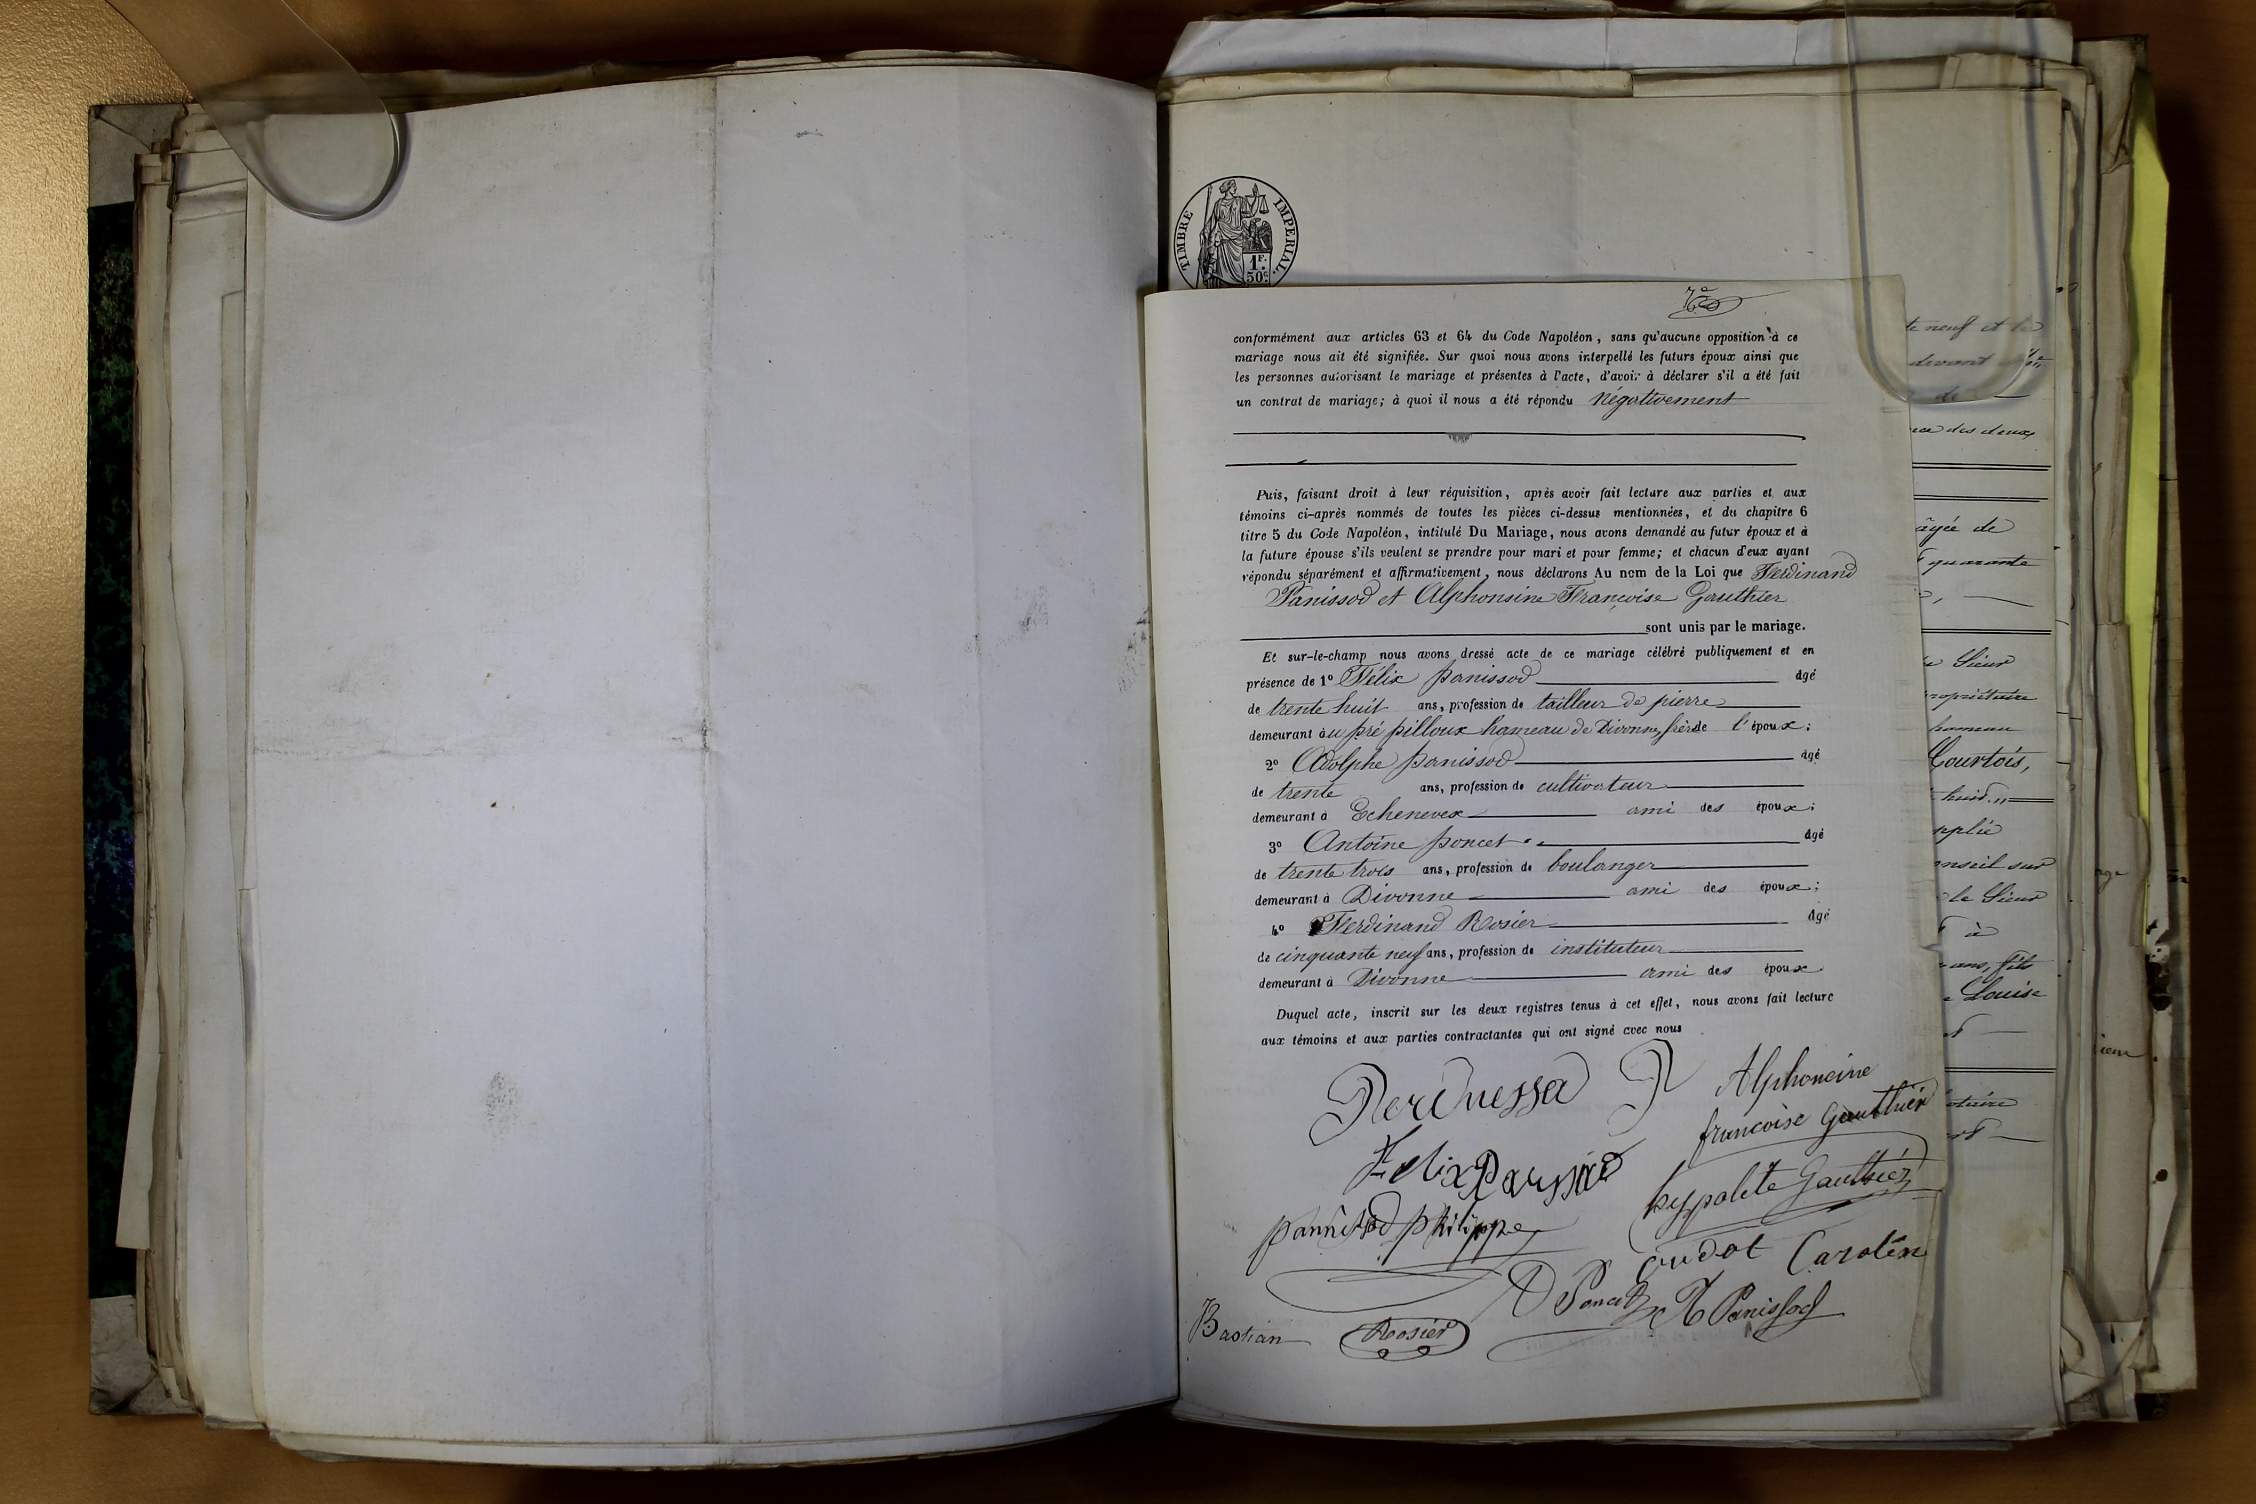 TIMBRE IMPERIAL.
1F.
50c.
conformément aux articles 63 et 64 du Code Napoléon, sans qu'aucune opposition à ce
mariage nous ait été signifiée. Sur quoi nous avons interpellé les futurs époux ainsi que
les personnes autorisant le mariage et présentes à l'acte, d'avoir à déclarer s'il a été fait
un contrat de mariage; à quoi il nous a été répondu négativement
Puis, faisant droit à leur réquisition, après avoir fait lecture aux parties et aux
témoins ci-après nommés de toutes les pièces ci-dessus mentionnées, et du chapitre 6
titre 5 du Code Napoléon, intitulé Du Mariage, nous avons demandé au futur époux et à
la future épouse s'ils veulent se prendre pour mari et pour femme; et chacun d'eux ayant
répondu séparément et affirmativement, nous déclarons Au nom de la Loi que Ferdinand
Panissod et Alphonsine Françoise Gauthier
sont unis par le mariage.
Et sur-le-champ nous avons dressé acte de ce mariage célébré publiquement et en
présence de 1º Félix panissod âgé
de trente huit ans, profession de tailleur de pierre
demeurant au pré pilloux hameau de Divonne, frère de l'époux;
2º Adolphe panissod âgé
de trente ans, profession de cultivateur
demeurant à Echenevex ami des époux;
3º Antoine poncet âgé
de trente trois ans, profession de boulanger
demeurant à Divonne ami des époux;
4º Ferdinand Rosier âgé
de cinquante neuf ans, profession de instituteur
demeurant à Divonne ami des époux
Duquel acte, inscrit sur les deux registres tenus à cet effet, nous avons fait lecture
aux témoins et aux parties contractantes qui ont signé avec nous
Alphoncine
francoise Gauthier
Felix
hypolite Gauthier
pannissod philippe
Carolin
Poncet
Panissod
Bastian
Rosier
neuf et
devant
de
des deux
âgée de
quarante
Sieur
propriétaire
hameau
Courtois,
huit
onseil sur
le Sieur
à
ans, fils
Louise